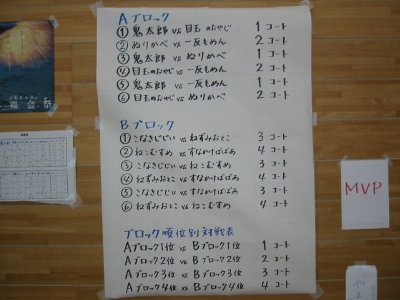 Aブロック
① 鬼太郎 vs 目玉のおやじ 1コート
② ぬりかべ vs 一反もめん 2コート
③ 鬼太郎 vs ぬりかべ 1コート
④ 目玉のおやじ vs 一反もめん 2コート
⑤ 鬼太郎 vs 一反もめん 1コート
⑥ 目玉のおやじ vs ぬりかべ 2コート
Bブロック
① こなきじじい vs ねずみおとこ 3コート
② ねこむすめ vs すなかけばばあ 4コート
③ こなきじじい vs ねこむすめ 3コート
④ ねずみおとこ vs すなかけばばあ 4コート
⑤ こなきじじい vs すなかけばばあ 3コート
⑥ ねずみおとこ vs ねこむすめ 4コート
ブロック順位別対戦表
Aブロック1位 vs Bブロック1位 1コート
Aブロック2位 vs Bブロック2位 2コート
Aブロック3位 vs Bブロック3位 3コート
Aブロック4位 vs Bブロック4位 4コート
MVP